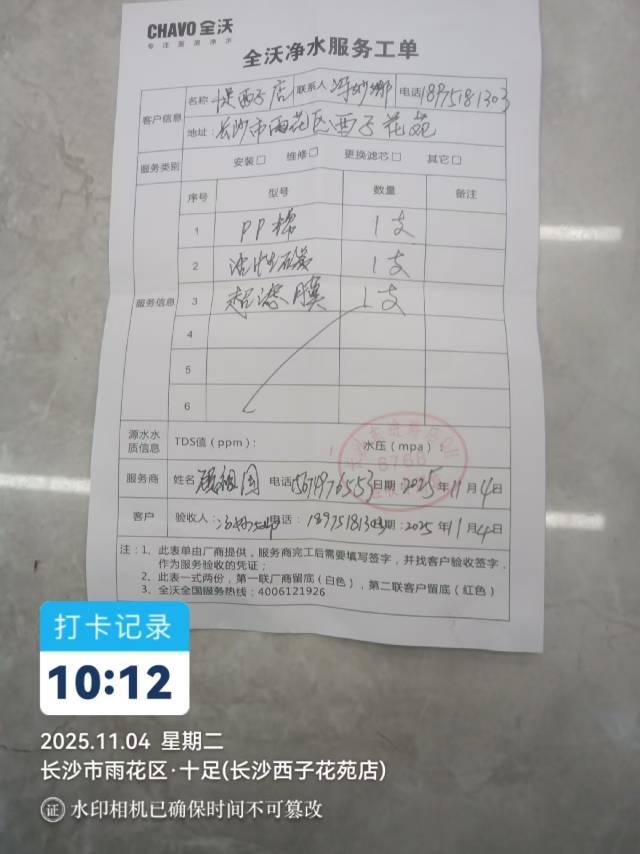 CHAVO 全沃
专注直饮净水
全沃净水服务工单
客户信息 名称 十足西子店 联系人 电话 18975181303
地址: 长沙市雨花区西子花苑
服务类别 安装□ 维修□ 更换滤芯□ 其它□
服务信息
序号 型号 数量 备注
1 PP棉 1支
2 活性碳 1支
3 超滤膜 1支
4
5
6
源水水质信息 TDS值(ppm): 水压(mpa):
6766
服务商 姓名 电话 日期: 2025年11月4日
客户 验收人: 电话: 18975181303 日期: 2025年11月4日
注:1、此表单由厂商提供,服务商完工后需要填写签字,并找客户验收签字,
作为服务验收的凭证;
2、此表一式两份,第一联厂商留底(白色),第二联客户留底(红色)
3、全沃全国服务热线:4006121926
打卡记录
10:12
2025.11.04 星期二
长沙市雨花区·十足(长沙西子花苑店)
证 水印相机已确保时间不可篡改